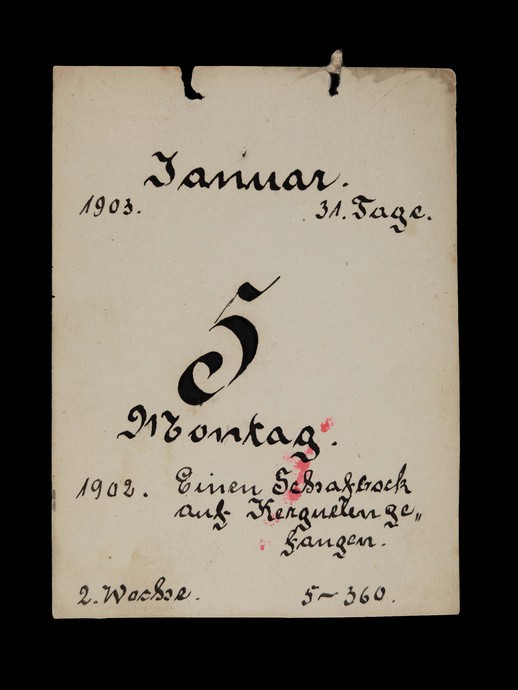 Januar.
1903. 31. Tage.
5
Montag.
1902. Einen Schafbock
auf Kerguelen ge„
fangen.
2. Woche. 5~360.